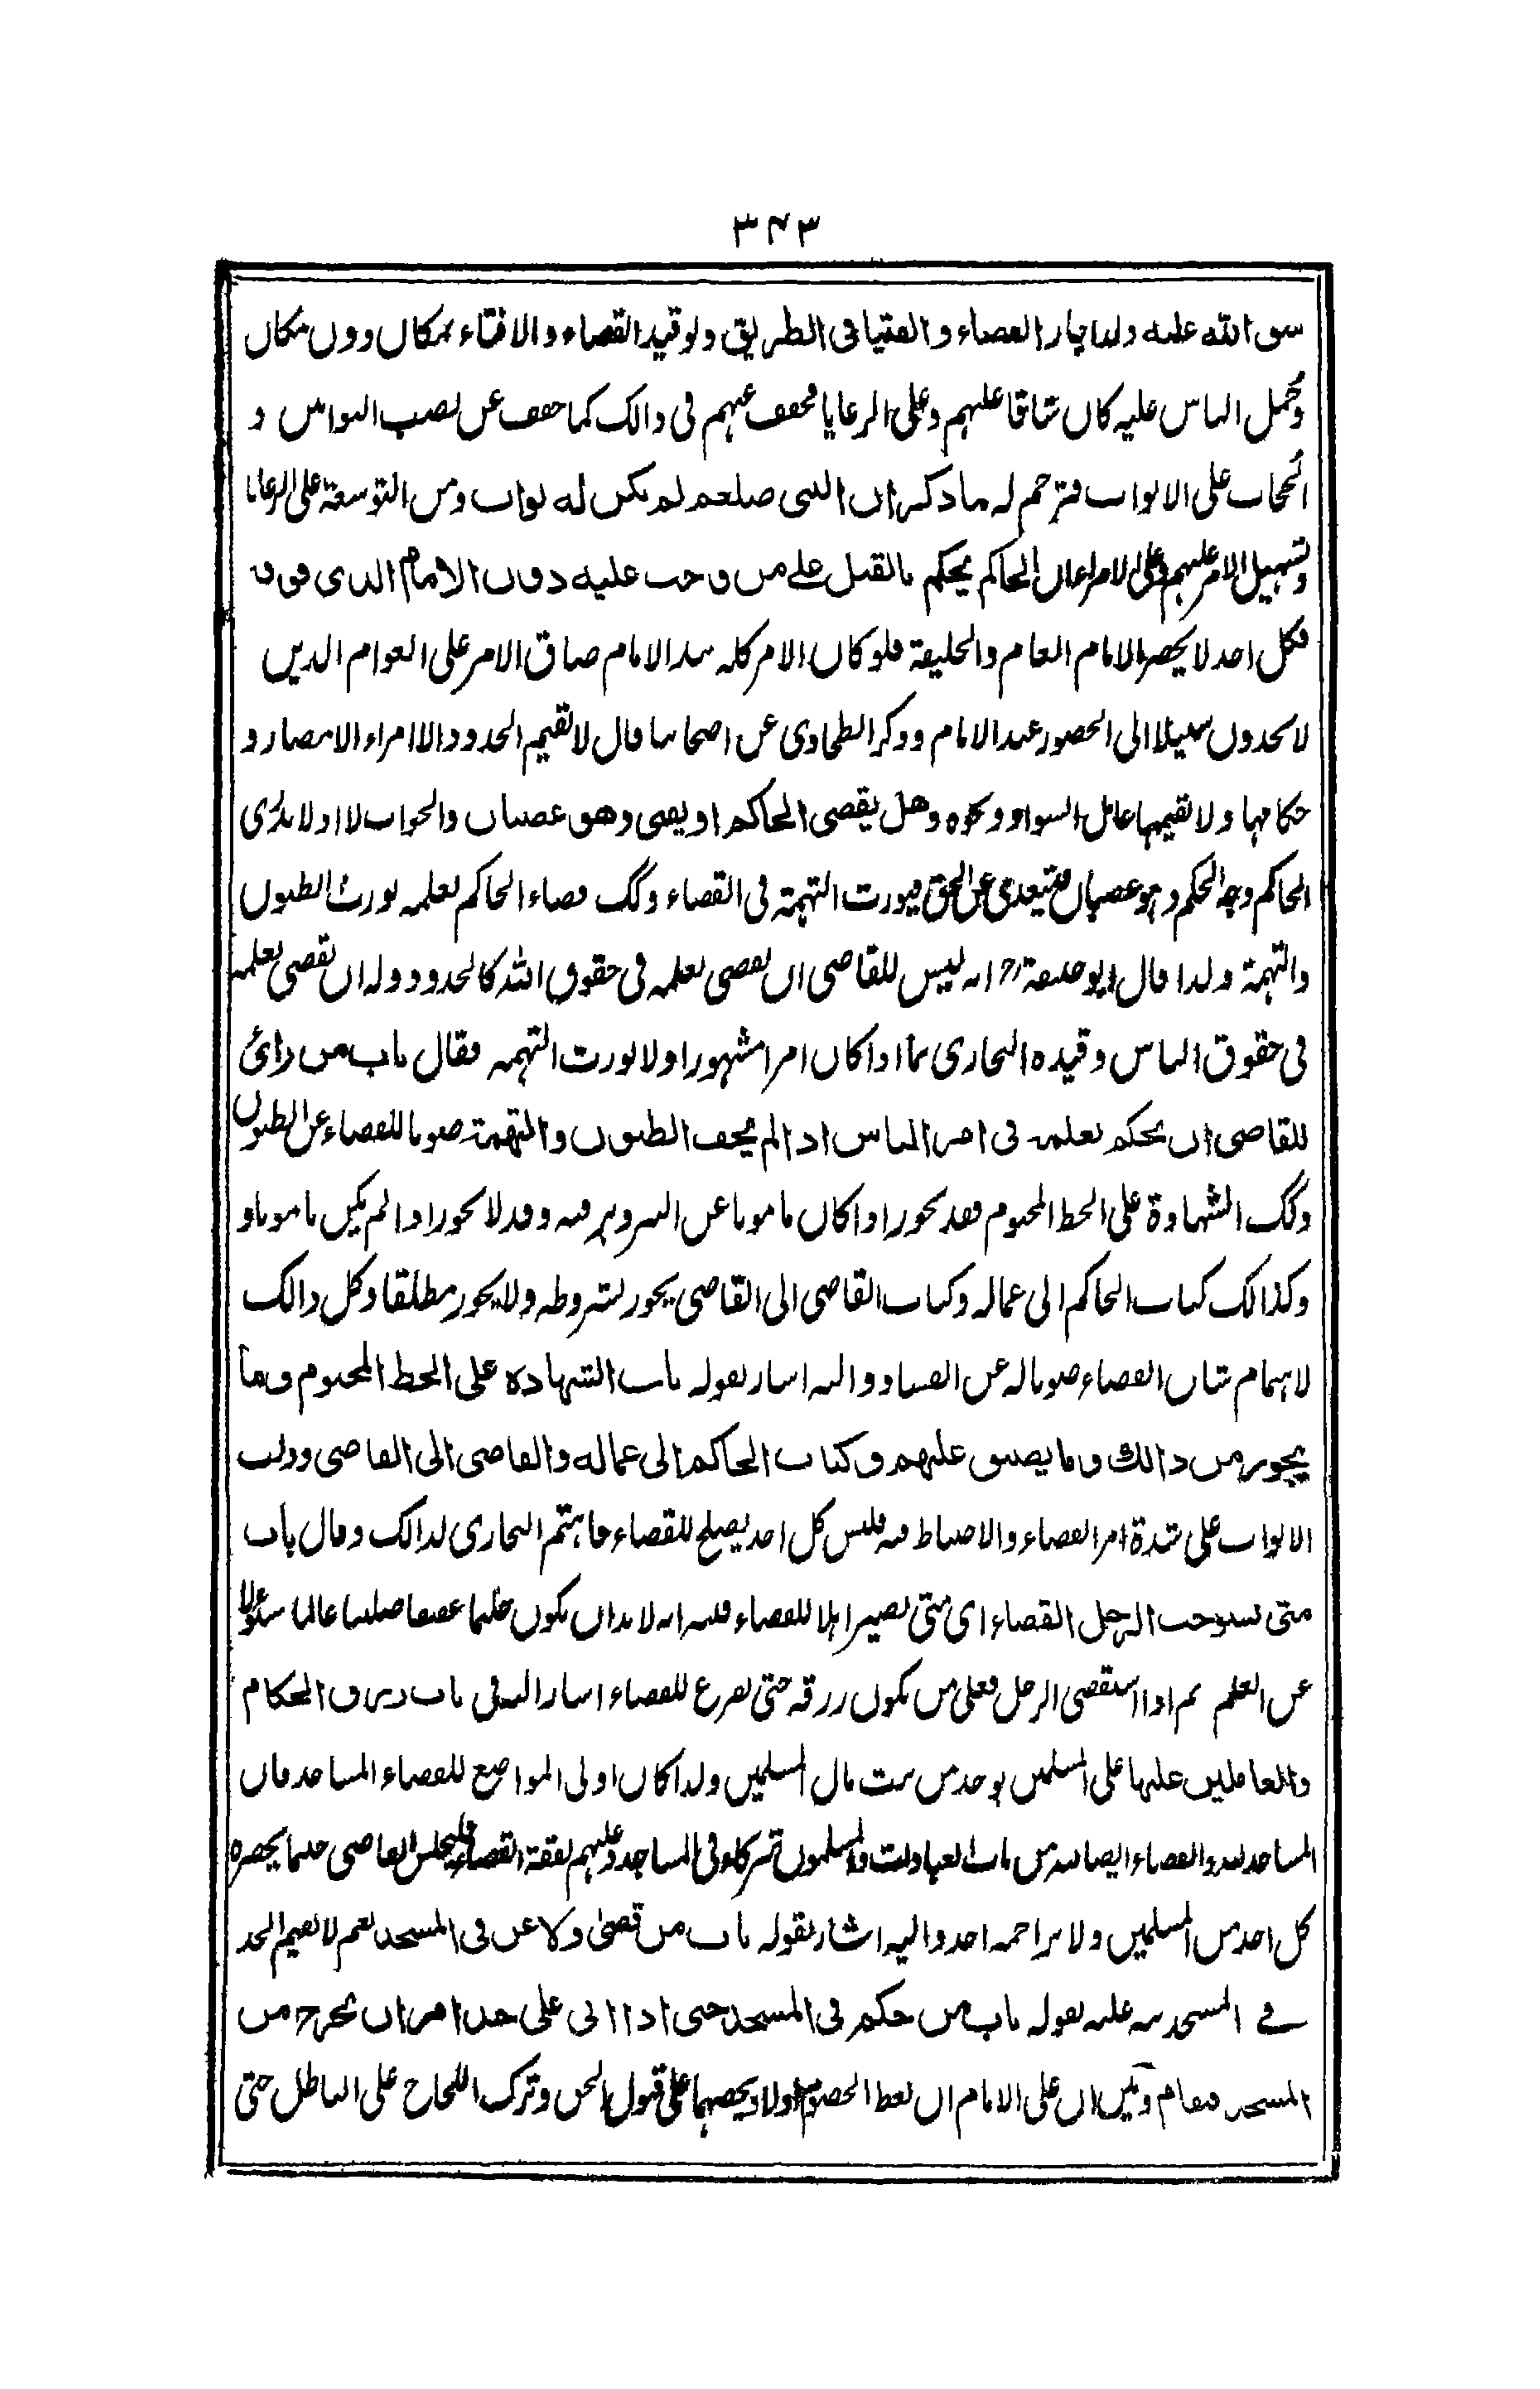 ۳۴۳
شق الله عليه ولذا جاز القضاء والفتيا فى الطريق ولو قيد القضاء والافتاء بمكان دون مكان
وحُمل الناس عليه كان شاقا عليهم وعلى الرعايا فخفف عنهم فى ذالك كما خفف عن نصب البوابين و
الحجاب على الابواب فترجم له ما ذكر ان النبى صلعم لم يكن له بواب ومن التوسعة على الرعايا
وتسهيل الامر عليهم وعلى الامراء ان الحاكم يحكم بالقتل على من وجب عليه دون الامام الذى فوقه
فكل احد لا يحضر الامام العام والخليفة فلو كان الامر كله بيد الامام ضاق الامر على العوام الذين
لا يجدون سبيلا الى الحضور عند الامام وذكر الطحاوى عن اصحابنا قال لا تقيم الحدود الا امراء الامصار و
حكامها ولا تقيمها عامل السواد ونحوه وهل يقضى الحاكم او يفتى وهو غضبان والجواب لا اولا يدرى
الحاكم وجه الحكم وهو غضبان فيتعدى عن الحق فيورث التهمة فى القضاء وكك قضاء الحاكم بعلمه يورث الظنون
والتهمة ولذا قال ابو حنيفة رح انه ليس للقاضى ان يقضى بعلمه فى حقوق الله كالحدود وله ان يقضى بعلمه
فى حقوق الناس وقيده البخارى بما اذا كان امرا مشهورا ولا يورث التهمه فقال باب من رائ
للقاضى ان يحكم بعلمه فى امر الناس اذا لم يخف الظنون والتهمة صونا للقضاء عن الظنون
وكك الشهادة على الخط المختوم فقد يجوز اذا كان مامونا عن التزوير فيه وقد لا يجوز اذا لم يكن مامونا و
وكذالك كتاب الحاكم الى عماله وكتاب القاضى الى القاضى يجوز بشروطه ولا يجوز مطلقا وكل ذالك
لاهتمام شان القضاء صونا له عن الفساد واليه اشار بقوله باب الشهاده على الخط المختوم وما
يجوز من ذالك وما يضيق عليهم وكتاب الحاكم الى عماله والقاضى الى القاضى ودلت
الابواب على شدة امر القضاء والاحتياط فيه فليس كل احد يصلح للقضاء فاهتم البخارى لذالك وقال باب
متى يستوجب الرجل القضاء اى متى يصير اهلا للقضاء ففيه انه لا بد ان يكون حليما عفيفا صليبا عالما سئولا
عن العلم ثم اذا استقضى الرجل فعلى من يكون رزقه حتى يفرغ للقضاء اشار اليه فى باب رزق الحكام
والعاملين عليها على المسلمين يوخذ من بيت مال المسلمين ولذا كان اولى المواضع للقضاء المساجد فان
المساجد لله والقضاء ايضا لله من باب العبادات والمسلمون شركاء فى المساجد وعليهم نفقة القضاء فليجلس القاضى حيثما يحضره
كل احد من المسلمين ولا يزاحمه احد واليه اشار بقوله باب من قضى ولاعن فى المسجد نعم لا يقيم الحد
فے المسجد نبه عليه بقوله باب من حكم فى المسجد حتى اذا اتى على حد امر ان يخرج من
المسجد فيقام وبيّن ان على الامام ان يعظ الخصوم اولا ويحضهما على قبول الحق وترك اللجاج على الباطل حتى